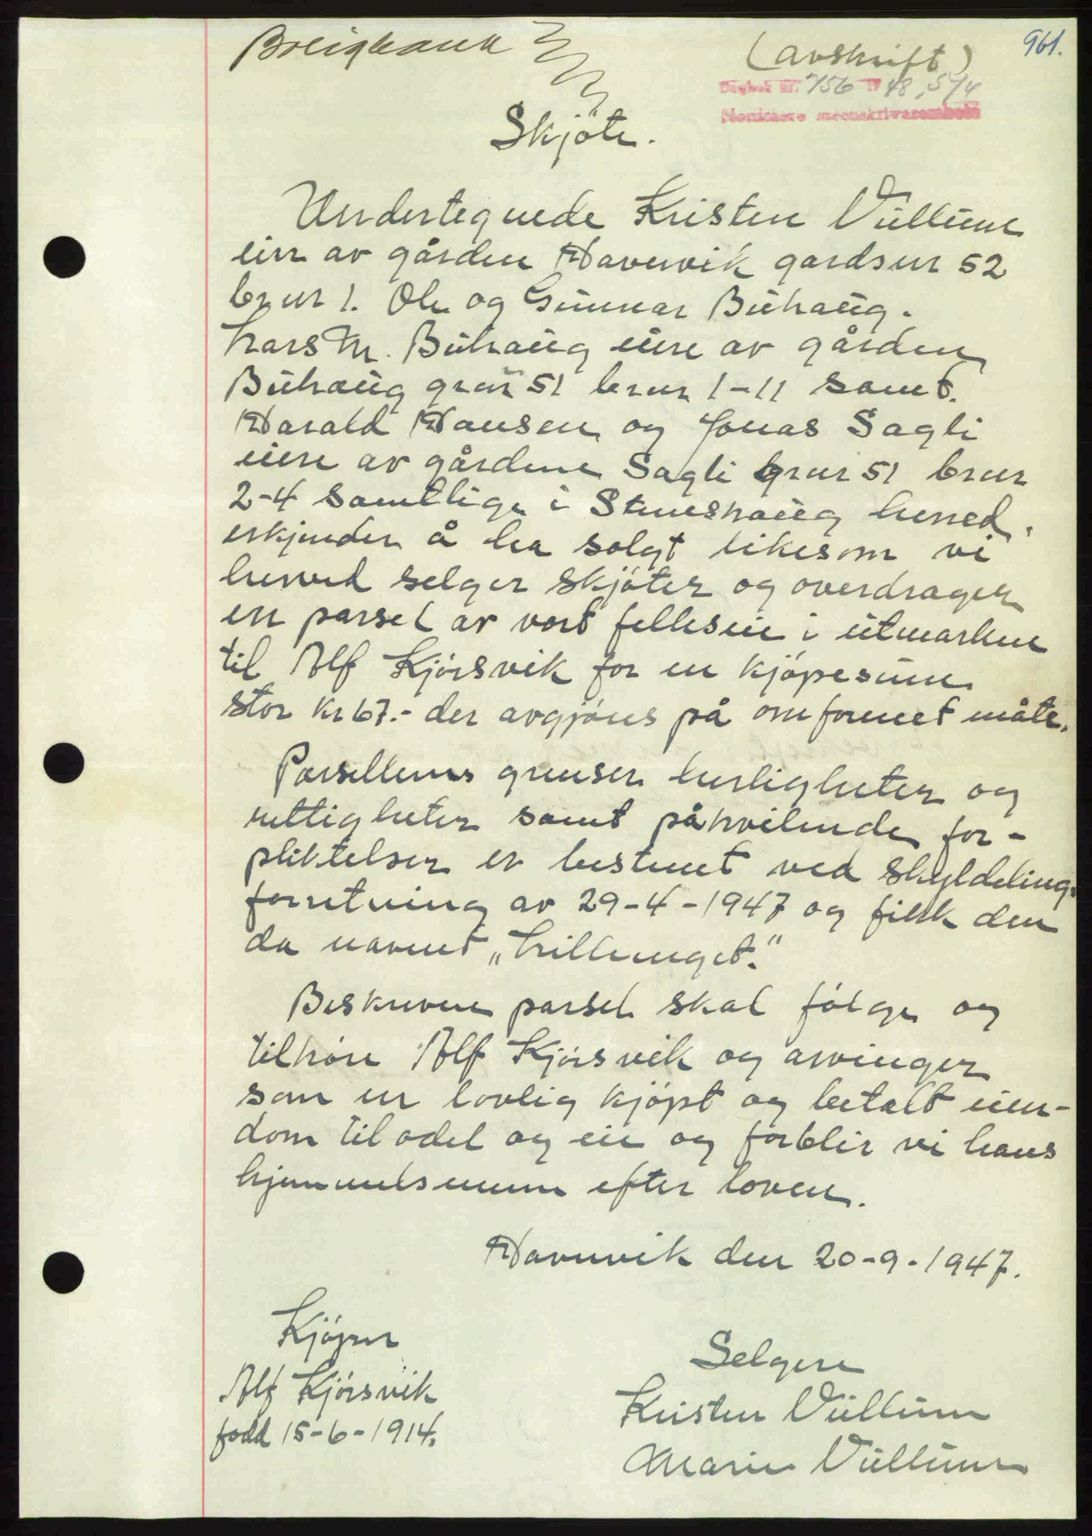 961.
(avskrift)
Dagbok nr. 756 19 48, 5/4
Nordmøre sorenskriverembede
Skjöte.
Undertegnede Kristen Vullum
eier av gården Havnvik gardsnr 52
brnr 1. Ole og Gunnar Buhaug.
Lars M. Buhaug eiere av gården
Buhaug grnr 51 brnr 1-11 samt.
Harald Hansen og Jonas Sagli
eiere av gårdene Sagli grnr 51 brnr
2-4 samtlige i Stemshaug herred.
erkjender å ha solgt likesom vi
herved selger skjöter og overdrager
en parsel av vort felleseie i utmarken
til Alf Kjörsvik for en kjöpesum
stor kr 67.- der avgjöres på omforenet måte.
Parsellens grenser herligheter og
rettigheter samt påhvilende for-
pliktelser er bestemt ved skylddeling-
forretning av 29-4-1947 og fikk den
da navnet „Lillenget."
Beskrevne parsel skal fölge og
tilhöre Alf Kjörsvik og arvinger
som en lovlig kjöpt og betalt eien-
dom til odel og eie og forblir vi hans
hjemmelsmenn efter loven.
Havnvik den 20-9-1947.
Kjöper
Alf Kjörsvik
född 15-6-1914.
Selgere
Kristen Vullum
Marie Vullum